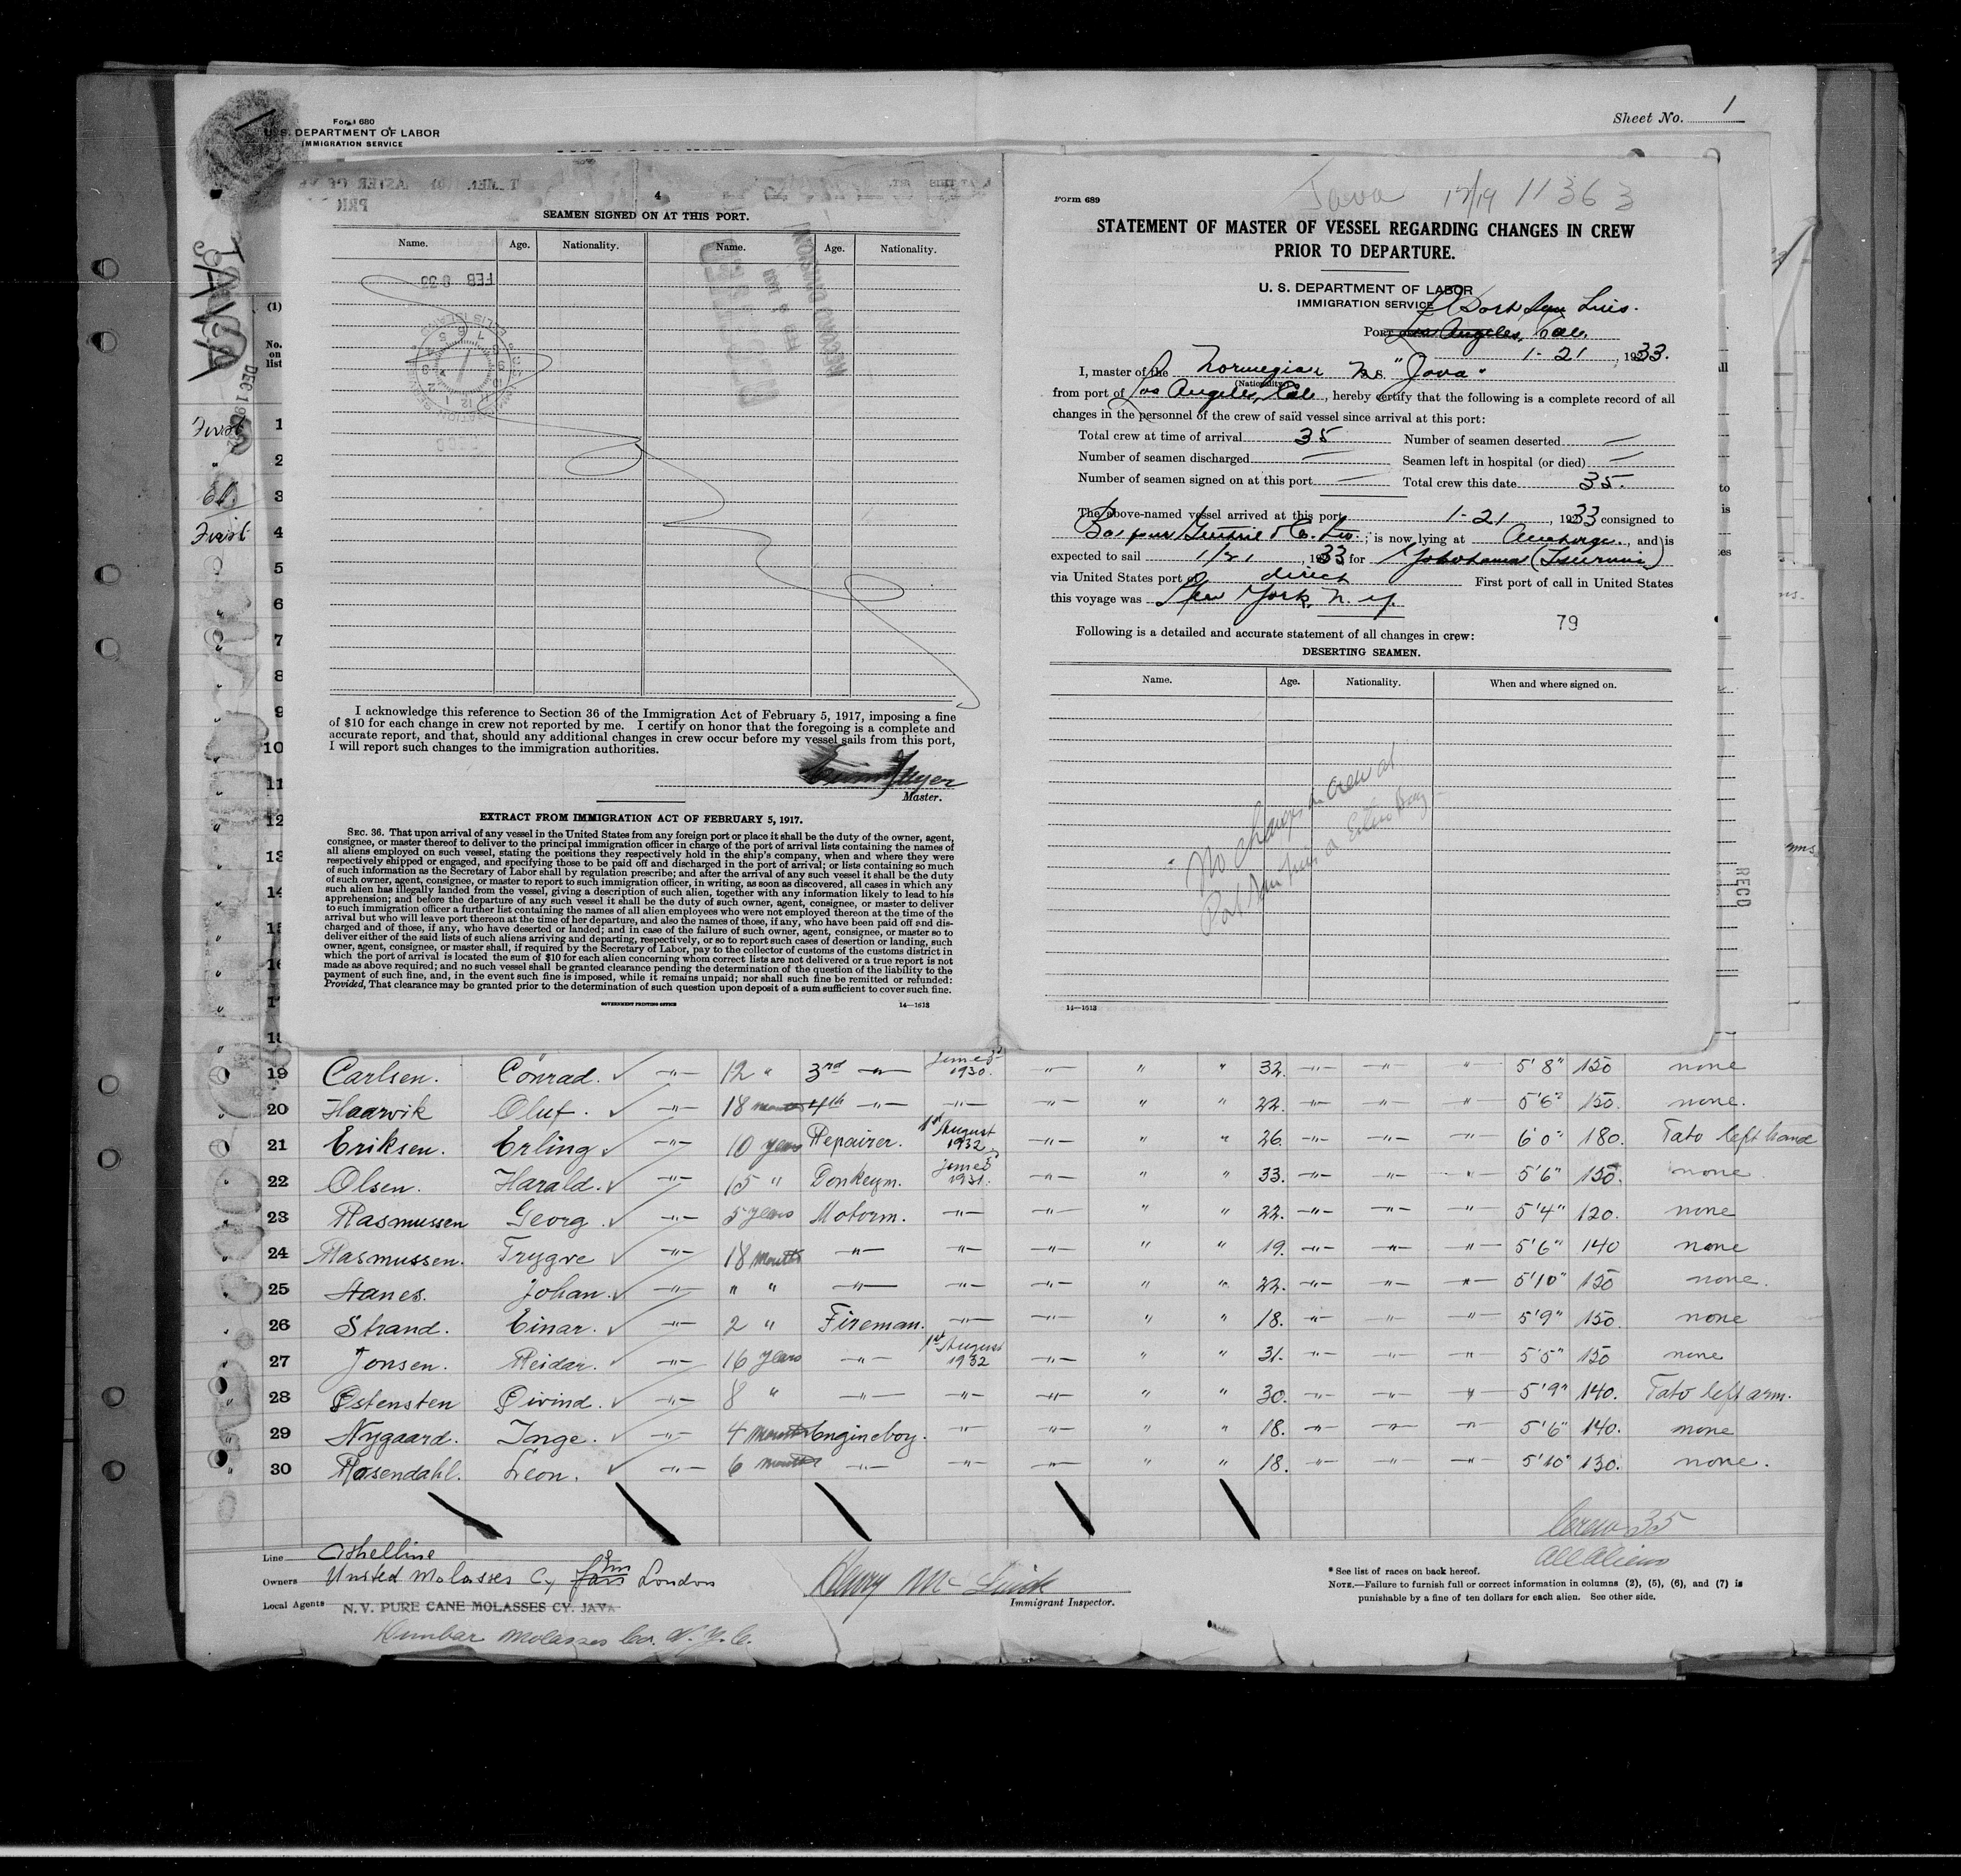 Form 680
U. S. DEPARTMENT OF LABOR
IMMIGRATION SERVICE
Sheet No. 1
JAVA
DEC 19 1932
(1)
No. on list
First 1
" 2
6 3
First 4
5
" 6
7
" 8
" 9
" 10
" 11
" 12
" 13
" 14
" 15
" 16
" 17
" 18
4
SEAMEN SIGNED ON AT THIS PORT.
Name. Age. Nationality. Name. Age. Nationality.
FEB 8 33
ELLIS ISLAND
I acknowledge this reference to Section 36 of the Immigration Act of February 5, 1917, imposing a fine
of $10 for each change in crew not reported by me. I certify on honor that the foregoing is a complete and
accurate report, and that, should any additional changes in crew occur before my vessel sails from this port,
I will report such changes to the immigration authorities.
Meyer
Master.
EXTRACT FROM IMMIGRATION ACT OF FEBRUARY 5, 1917.
SEC. 36. That upon arrival of any vessel in the United States from any foreign port or place it shall be the duty of the owner, agent,
consignee, or master thereof to deliver to the principal immigration officer in charge of the port of arrival lists containing the names of
all aliens employed on such vessel, stating the positions they respectively hold in the ship's company, when and where they were
respectively shipped or engaged, and specifying those to be paid off and discharged in the port of arrival; or lists containing so much
of such information as the Secretary of Labor shall by regulation prescribe; and after the arrival of any such vessel it shall be the duty
of such owner, agent, consignee, or master to report to such immigration officer, in writing, as soon as discovered, all cases in which any
such alien has illegally landed from the vessel, giving a description of such alien, together with any information likely to lead to his
apprehension; and before the departure of any such vessel it shall be the duty of such owner, agent, consignee, or master to deliver
to such immigration officer a further list containing the names of all alien employees who were not employed thereon at the time of the
arrival but who will leave port thereon at the time of her departure, and also the names of those, if any, who have been paid off and dis-
charged and of those, if any, who have deserted or landed; and in case of the failure of such owner, agent, consignee, or master so to
deliver either of the said lists of such aliens arriving and departing, respectively, or so to report such cases of desertion or landing, such
owner, agent, consignee, or master shall, if required by the Secretary of Labor, pay to the collector of customs of the customs district in
which the port of arrival is located the sum of $10 for each alien concerning whom correct lists are not delivered or a true report is not
made as above required; and no such vessel shall be granted clearance pending the determination of the question of the liability to the
payment of such fine, and, in the event such fine is imposed, while it remains unpaid; nor shall such fine be remitted or refunded:
Provided, That clearance may be granted prior to the determination of such question upon deposit of a sum sufficient to cover such fine.
GOVERNMENT PRINTING OFFICE 14—1613
Java 12/19 11363
Form 689
STATEMENT OF MASTER OF VESSEL REGARDING CHANGES IN CREW
PRIOR TO DEPARTURE.
U. S. DEPARTMENT OF LABOR
IMMIGRATION SERVICE
Port San Luis.
Port Los Angeles, Cal.
1-21, 1933.
I, master of the Norwegian M.S. "Java"
(Nationality)
from port of Los Angeles, Cal., hereby certify that the following is a complete record of all
changes in the personnel of the crew of said vessel since arrival at this port:
Total crew at time of arrival 35 Number of seamen deserted —
Number of seamen discharged — Seamen left in hospital (or died) —
Number of seamen signed on at this port — Total crew this date 35.
The above-named vessel arrived at this port 1-21, 1933 consigned to
Balfour Guthrie & Co. Ltd.; is now lying at Anchorage, and is
expected to sail 1/21, 1933 for Yokohama (Tsurumi)
via United States port of direct First port of call in United States
this voyage was New York, N. Y.
79
Following is a detailed and accurate statement of all changes in crew:
DESERTING SEAMEN.
Name. Age. Nationality. When and where signed on.
No changes in crew at
Port San Luis or Estero Bay
14—1613
RECD
19 Carlsen. Conrad. ✓ —"— 12 " 3rd —"— June 5 1930. —"— " " 32. —"— —"— —"— 5'8" 150 none
20 Haarvik Oluf. ✓ —"— 18 months 4th —"— —"— —"— " " 22. —"— —"— " 5'6" 150. none.
21 Eriksen. Erling ✓ —"— 10 years Repairer. 1st August 1932 —"— " " 26. —"— —"— —"— 6'0" 180. Tato left hand
22 Olsen. Harald. ✓ —"— 15 " Donkeym. June 5 1931. —"— " " 33. —"— —"— " 5'6" 150. none
23 Rasmussen Georg ✓ —"— 5 years Motorm. —"— —"— " " 22. —"— —"— —"— 5'4" 120. none
24 Rasmussen. Trygve ✓ —"— 18 months —"— —"— —"— " " 19. —"— —"— —"— 5'6" 140 none
25 Hanes. Johan. ✓ —"— " " —"— —"— —"— " " 22. —"— —"— —"— 5'10" 150 none.
26 Strand. Einar. ✓ —"— 2 " Fireman. —"— —"— " " 18. —"— —"— —"— 5'9" 150. none
27 Jonsen. Reidar. ✓ —"— 16 years —"— 1st August 1932 —"— " " 31. —"— —"— —"— 5'5" 150 none
28 Østensten Øivind. ✓ —"— 8 " —"— —"— —"— " " 30. —"— —"— —"— 5'9" 140. Tato left arm.
29 Nygaard. Inge. ✓ —"— 4 months Engineboy. —"— —"— " " 18. —"— —"— —"— 5'6" 140. none
30 Rosendahl. Leon. ✓ —"— 6 months —"— —"— —"— " " 18. —"— —"— —"— 5'10" 130. none.
Crew 35
all aliens
Line Athelline
Owners United Molasses Cy London
Local Agents N.V. PURE CANE MOLASSES CY. JAVA
Dunbar Molasses Co. N.Y.C.
Henry Mc
Immigrant Inspector.
* See list of races on back hereof.
NOTE.—Failure to furnish full or correct information in columns (2), (5), (6), and (7) is
punishable by a fine of ten dollars for each alien. See other side.